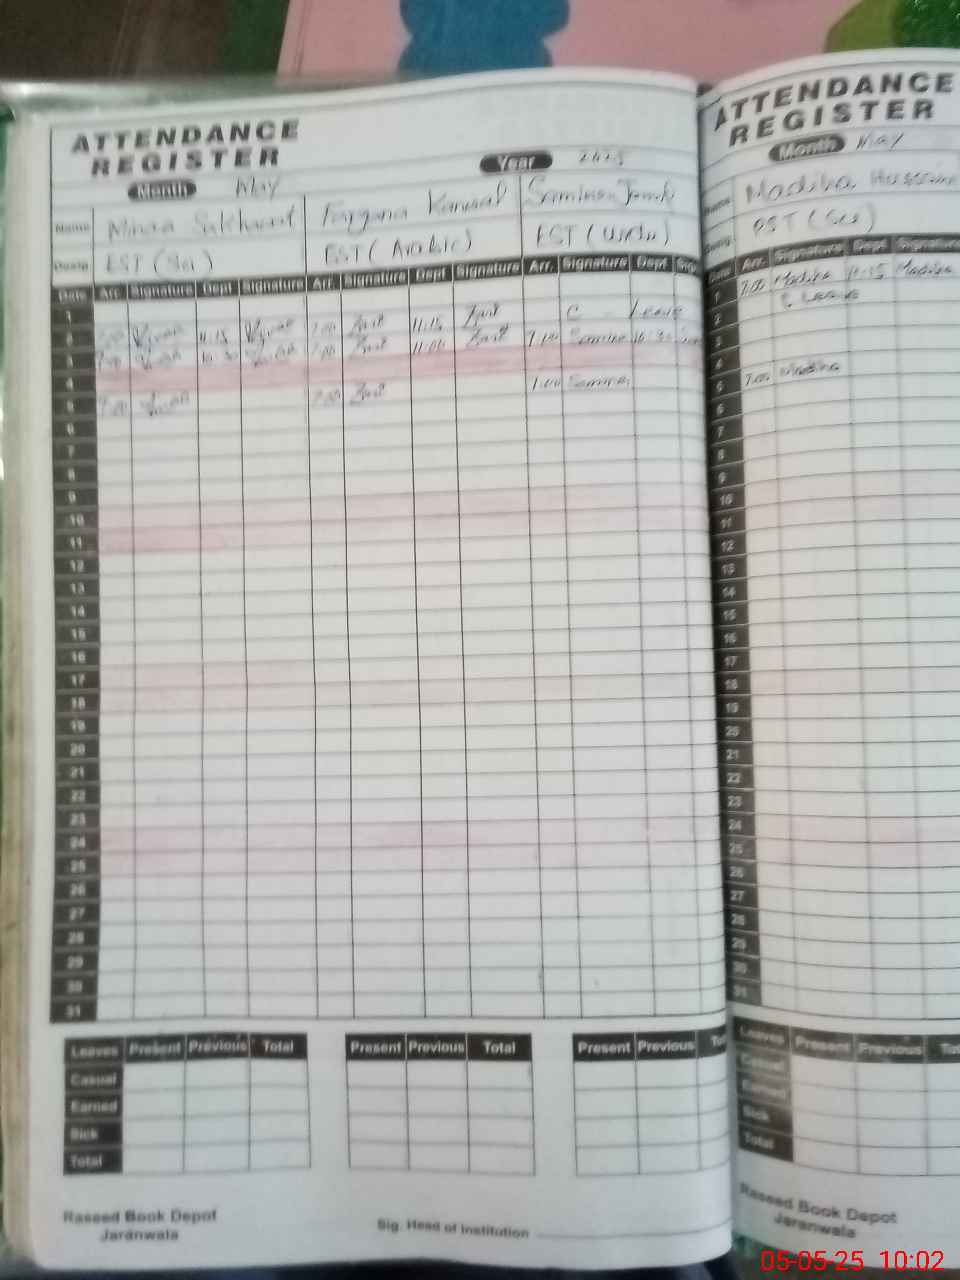 ATTENDANCE
REGISTER
Month May
Year 2025
Name Sakhawat Kanwal
Desig. EST (Sci) EST (Arabic) EST (Urdu)
Date Arr. Signature Dept Signature Arr. Signature Dept Signature Arr. Signature Dept Sig
1 C - Leave
2 7:00 11:15 7:00 11:15
3 7:00 10:30 7:00 11:00 7:00 10:30
4
5 7:00 7:00 7:00
6
7
8
9
10
11
12
13
14
15
16
17
18
19
20
21
22
23
24
25
26
27
28
29
30
31
Leaves Present Previous Total Present Previous Total Present Previous
Casual
Earned
Sick
Total
Raseed Book Depot
Jaranwala
Sig. Head of Institution
ATTENDANCE
REGISTER
Month May
Name Madiha Hussain
Desig.
Date Arr. Signature Dept Signature
1 7:00 Madiha 11:15 Madiha
2 C Leave
3
4
5 7:00 Madiha
6
7
8
9
10
11
12
13
14
15
16
17
18
19
20
21
22
23
24
25
26
27
28
29
30
31
Leaves Present Previous
Casual
Earned
Sick
Total
Raseed Book Depot
Jaranwala
05-05-25 10:02